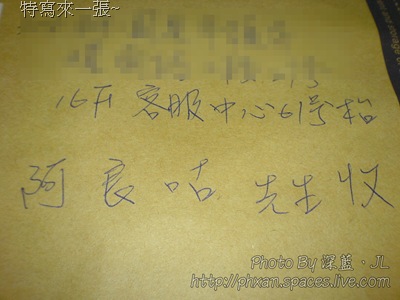 特寫來一張~
16F 客服中心61号枱
阿良咕 先生 收
Photo By 深藍‧JL
http://phxam.spaces.live.com/